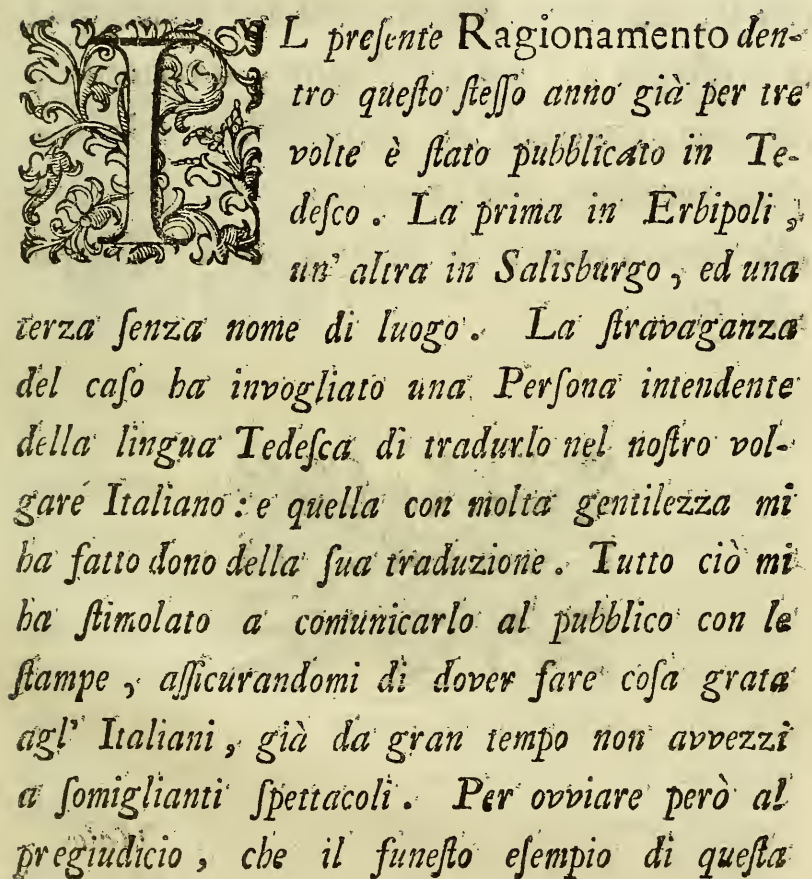 IL preſente Ragionamento den-
tro queſto ſteſſo anno già per tre
volte è ſtato pubblicato in Te-
deſco. La prima in Erbipoli,
un' altra in Salisburgo, ed una
terza ſenza nome di luogo. La ſtravaganza
del caſo ha invogliato una Perſona intendente
della lingua Tedeſca di tradurlo nel noſtro vol-
gare Italiano: e quella con molta gentilezza mi
ha fatto dono della ſua traduzione. Tutto ciò mi
ha ſtimolato a comunicarlo al pubblico con le
ſtampe, aſſicurandomi di dover fare coſa grata
agl' Italiani, già da gran tempo non avvezzi
a ſomiglianti ſpettacoli. Per ovviare però al
pregiudicio, che il funeſto eſempio di queſta